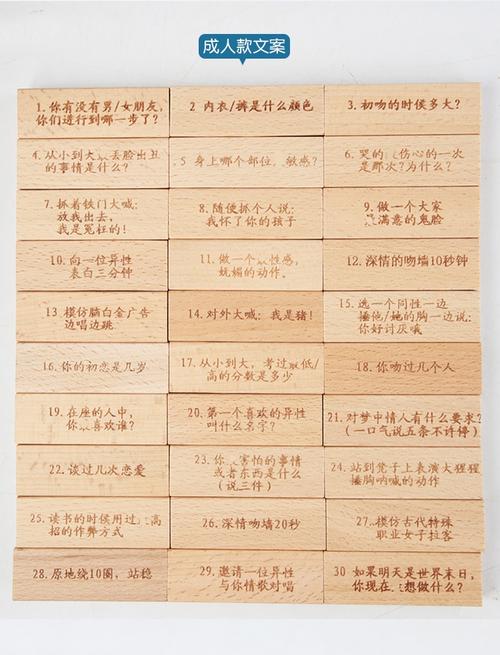 成人款文案
1. 你有没有男/女朋友,
你们进行到哪一步了?
2 内衣/裤是什么颜色
3. 初吻的时候多大?
4. 从小到大 丢脸出丑
的事情是什么?
5 身上哪个部位, 敏感?
6. 哭的 伤心的一次
是那次?为什么?
7. 抓着铁门大喊:
放我出去,
我是冤枉的!
8. 随便抓个人说:
我怀了你的孩子
9. 做一个大家
满意的鬼脸
10. 向一位异性
表白三分钟
11. 做一个 性感,
妩媚的动作.
12. 深情的吻墙10秒钟
13 模仿脑白金广告
边唱边跳
14. 对外大喊: 我是猪!
15. 选一个同性一边
捶他/她的胸一边说:
你好讨厌哦
16. 你的初恋是几岁
17. 从小到大, 考过 低/
高的分数是多少
18. 你吻过几个人
19. 在座的人中,
你 喜欢谁?
20. 第一个喜欢的异性
叫什么名字?
21. 对梦中情人有什么要求?
(一口气说五条不许停)
22. 谈过几次恋爱
23. 你 害怕的事情
或者东西是什么
(说三件)
24. 站到凳子上表演大猩猩
捶胸呐喊的动作
25. 读书的时候用过 高
招的作弊方式
26. 深情吻墙20秒
27. 模仿古代特殊
职业女子拉客
28. 原地绕10圈, 站稳
29. 邀请一位异性
与你情歌对唱
30 如果明天是世界末日,
你现在 想做什么?